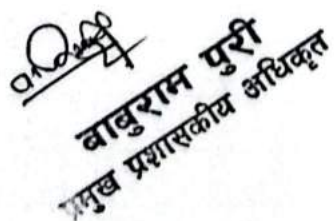 बाबुराम पुरी
प्रमुख प्रशासकीय अधिकृत